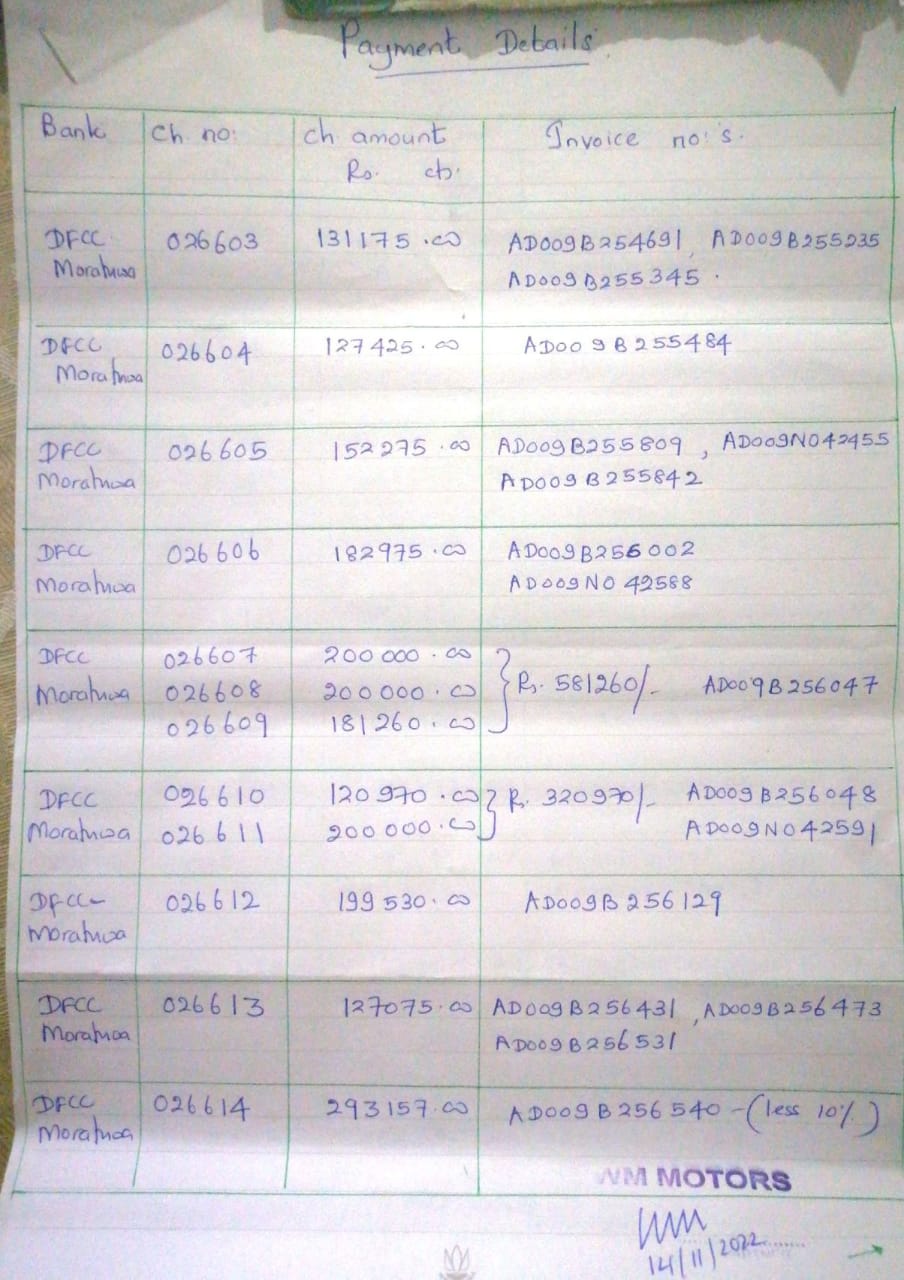 Payment Details
Bank Ch. no: Ch. amount Invoice no:'s.
Rs. cts.
DFCC 026603 131175.00 AD009B254691, AD009B255235
Moratuwa AD009B255345.
DFCC 026604 127425.00 AD009B255484
Moratuwa
DFCC 026605 152275.00 AD009B255809, AD009N042455
Moratuwa AD009B255842
DFCC 026606 182975.00 AD009B256002
Moratuwa AD009N042588
DFCC 026607 200000.00
Moratuwa 026608 200000.00 Rs. 581260/- AD009B256047
026609 181260.00
DFCC 026610 120970.00 Rs. 320970/- AD009B256048
Moratuwa 026611 200000.00 AD009N042591
DFCC 026612 199530.00 AD009B256129
Moratuwa
DFCC 026613 127075.00 AD009B256431, AD009B256473
Moratuwa AD009B256531
DFCC 026614 293157.00 AD009B256540 - (less 10%)
Moratuwa
WM MOTORS
14/11/2022